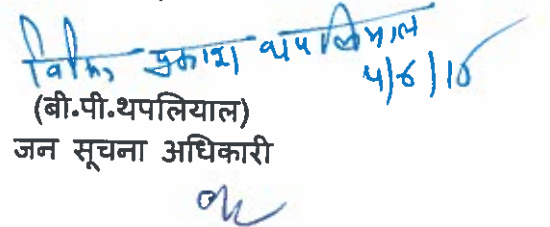 प्रकाश थपलियाल
4/6/18
(बी.पी.थपलियाल)
जन सूचना अधिकारी